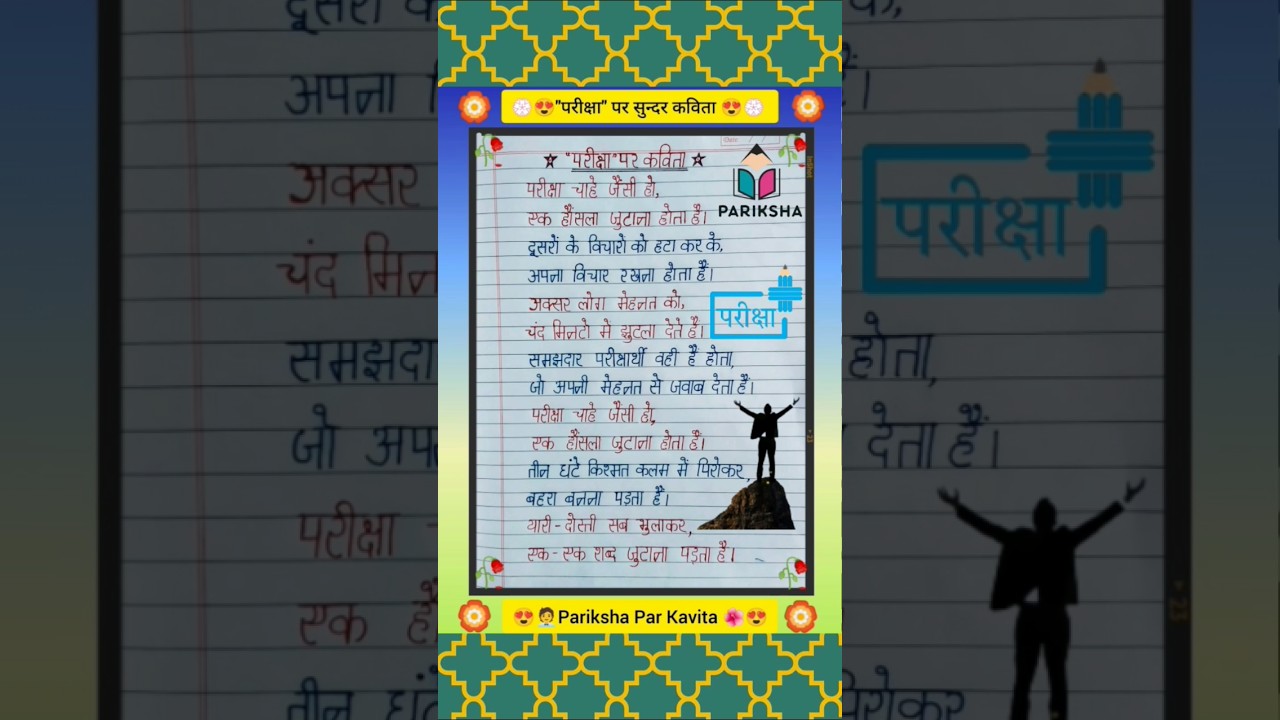 "परीक्षा" पर सुन्दर कविता
"परीक्षा" पर कविता
PARIKSHA
परीक्षा चाहे जैसी हो,
एक हौंसला जुटाना होता है।
दूसरों के विचारो को हटा कर के,
अपना विचार रखना होता हैं।
अक्सर लोग मेहनत को,
चंद मिनटो में झुटला देते है।
परीक्षा
समझदार परीक्षार्थी वही है होता,
जो अपनी मेहनत से जवाब देता हैं।
परीक्षा चाहे जैसी हो,
एक हौंसला जुटाना होता है।
तीन घंटे किस्मत कलम में पिरोकर,
बहरा बनना पड़ता हैं।
यारी-दोस्ती सब भुलाकर,
एक-एक शब्द जुटाना पड़ता है।
Pariksha Par Kavita
दूसरों
के,
अपना
है।
अक्सर
चंद मिन
परीक्षा
समझदा
होता,
जो अप
देता हैं।
परीक्षा
एक हौं
तीन घंटे
पिरोकर